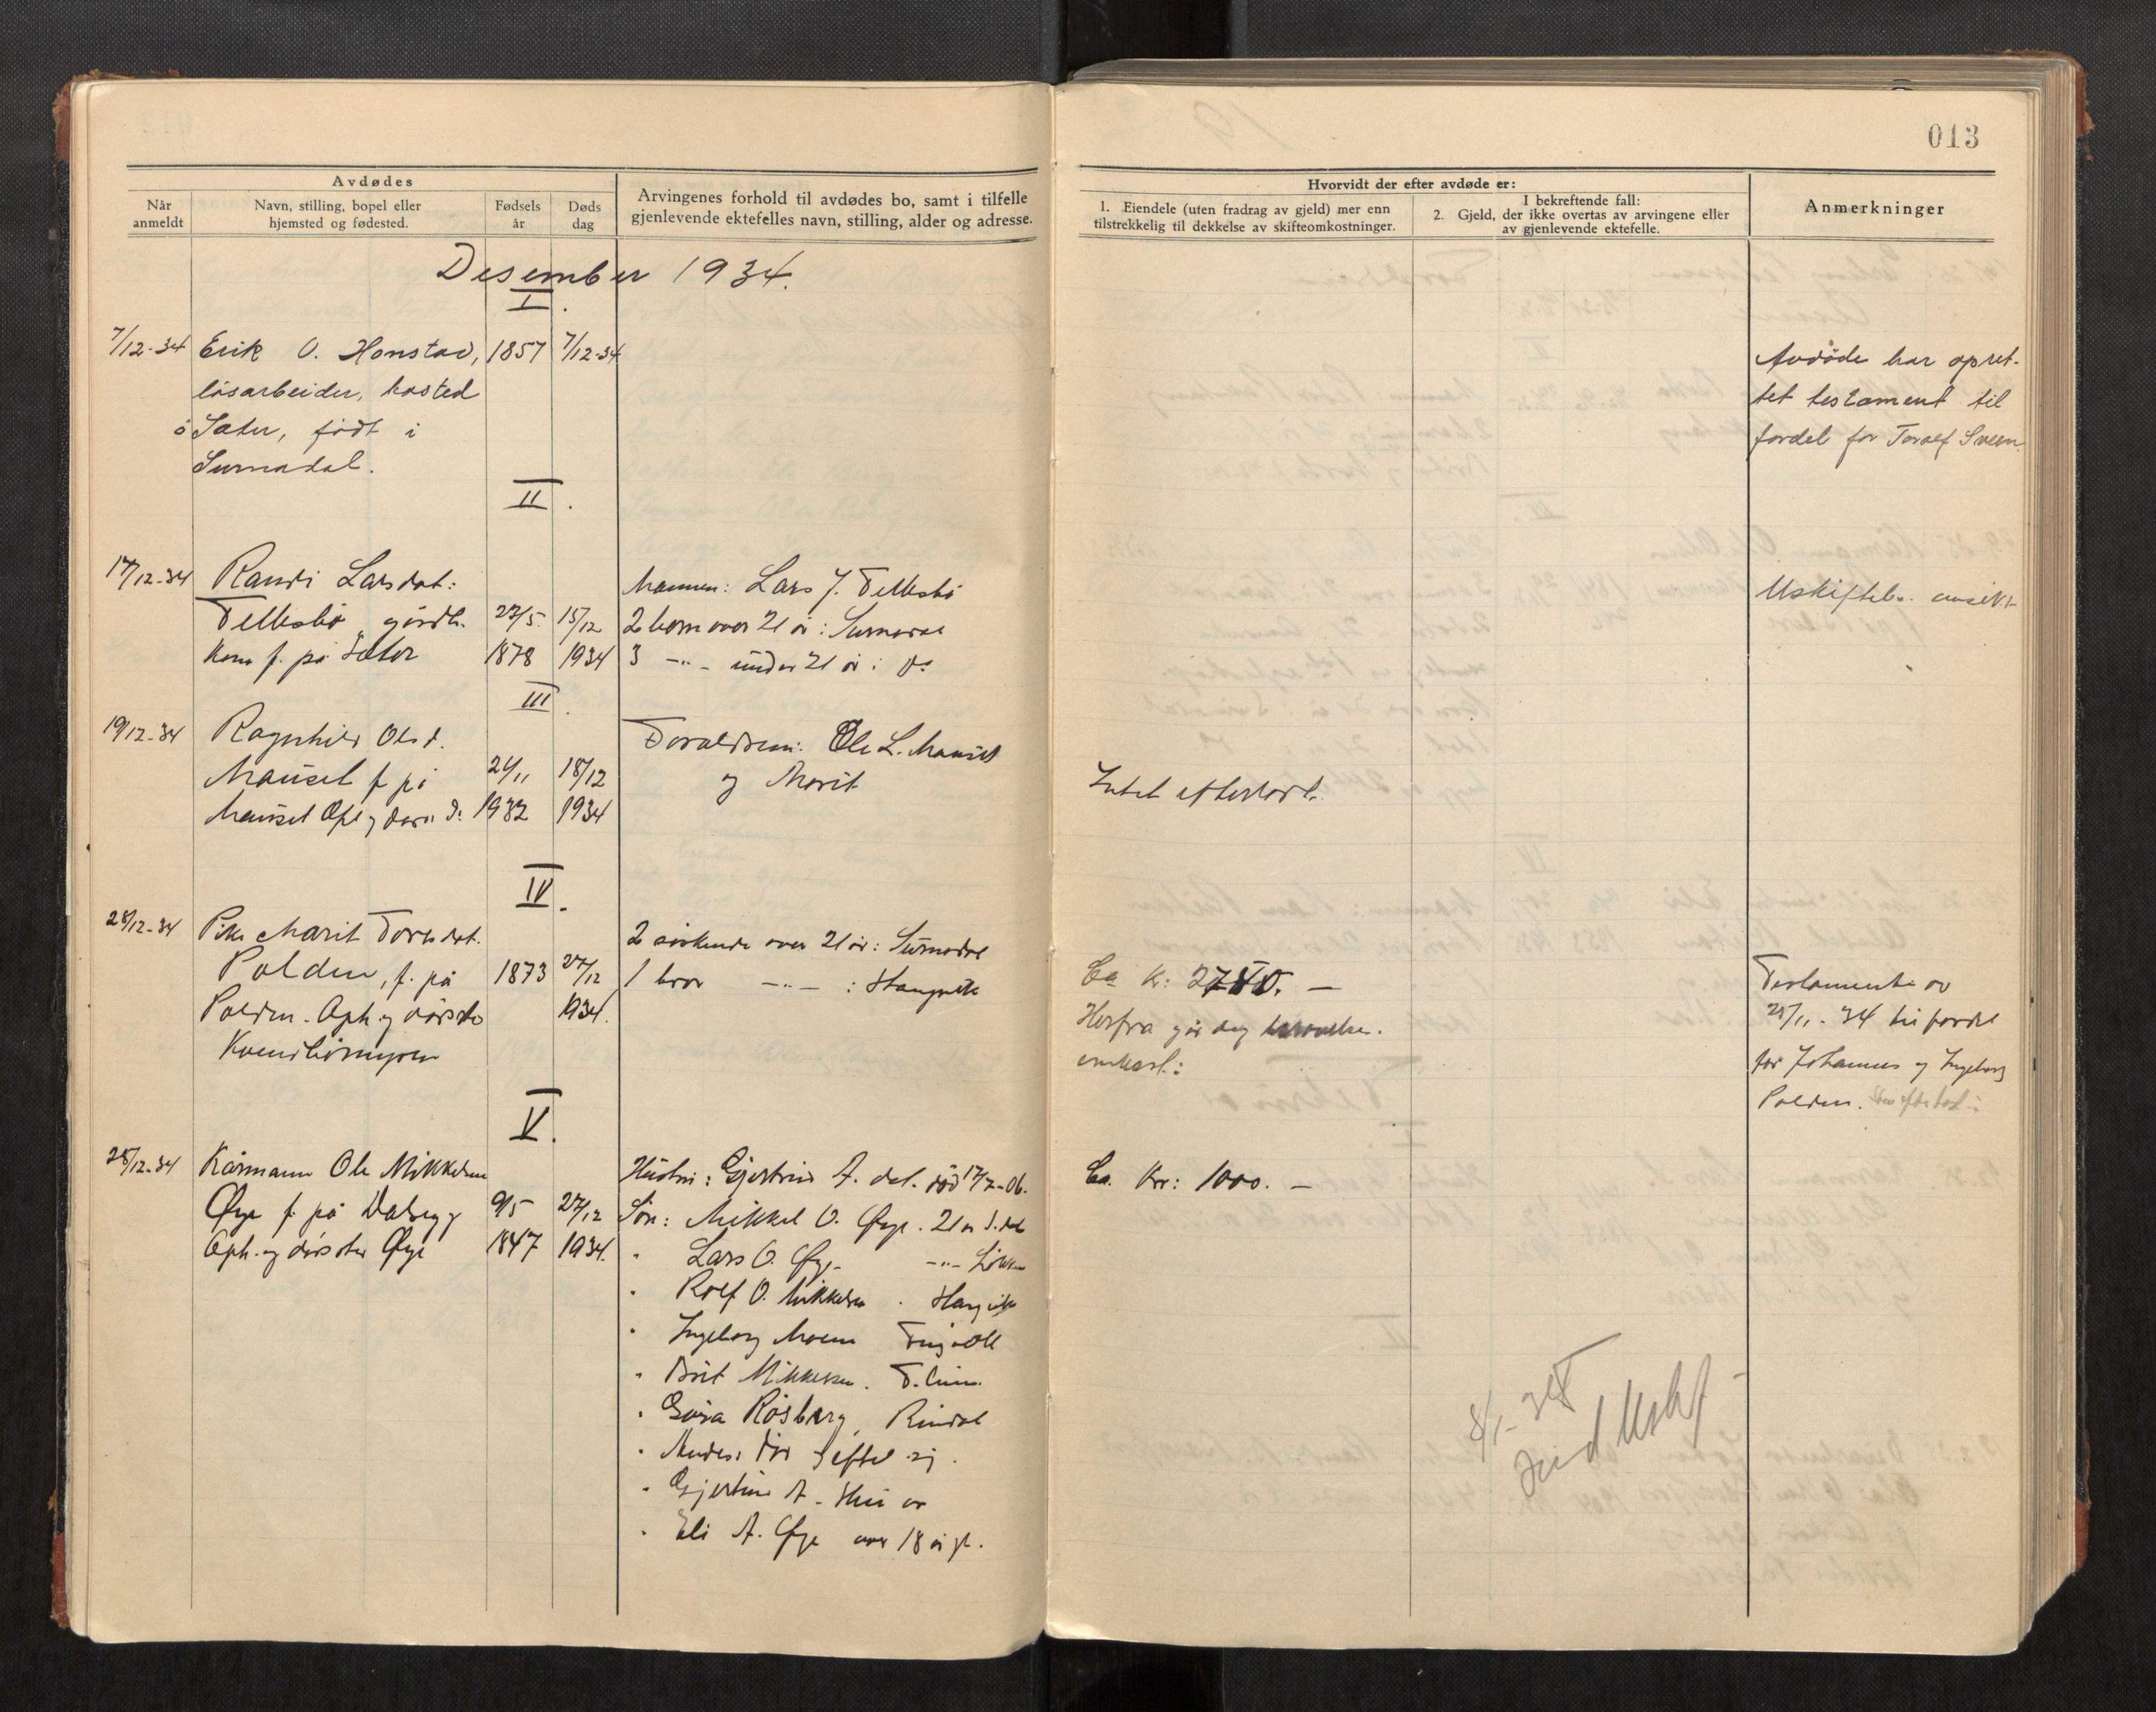 013
Avdødes
Når anmeldt
Navn, stilling, bopel eller hjemsted og fødested.
Fødsels år
Døds dag
Arvingenes forhold til avdødes bo, samt i tilfelle gjenlevende ektefelles navn, stilling, alder og adresse.
Hvorvidt der efter avdøde er:
1. Eiendele (uten fradrag av gjeld) mer enn tilstrekkelig til dekkelse av skifteomkostninger.
I bekreftende fall:
2. Gjeld, der ikke overtas av arvingene eller av gjenlevende ektefelle.
Anmerkninger
Desember 1934.
I.
7/12-34 Erik O. Honstad, 1857 7/12-34
løsarbeider, bosted
Sæter, født i
Surnadal.
Avdöde har opret-
tet testament til
fordel for Toralf Sveen.
II.
17/12-34 Randi Larsdat:
Tellesbö gårdb. 22/5 15/12
Kone f. på Sæter 1878 1934
Mannen: Lars J. Tellesbö
2 born over 21 år: Surnadal
3 -"- under 21 år: do
Uskifteb.
III.
19/12-34 Ragnhild Olsd.
Mauset f. på 24/11 18/12
Mauset Oph. og dørs. d: 1932 1934
Foreldrene: Ole L. Mauset
og Marit
Intet efterlatt.
IV.
28/12-34 Pike Marit Toresdat.
Polden, f. på 1873 27/12
Polden. Oph. og dørsted 1934.
2 søskende over 21 år: Surnadal
1 bror -"- : Stangvik
Ca. kr:
Herfra går deg
omkost.:
Testamente av
25/11-34 til fordel
for Johannes og Ingeborg
Polden.
V.
28/12-34 Kårmann Ole Mikkelsen
Øye f. på Dalsegg 9/5 27/12
Oph. og dørsted Øye 1847 1934.
Hustru: Gjertrud A. dat. død 17/7-06.
Søn: Mikkel O. Øye. 21 år S.dal
" Lars O. Øye -"- Løkken
" Rolf O. Mikkelsen " Stangvik
" Ingeborg Moen Tingvoll
" Brit Mikkelsen. T.heim.
" Gura Røsberg, Rindal
" Anders død
" Gjertine A.
" Eli A. Øye over 18 år gl.
Ca. Kr: 1000. —